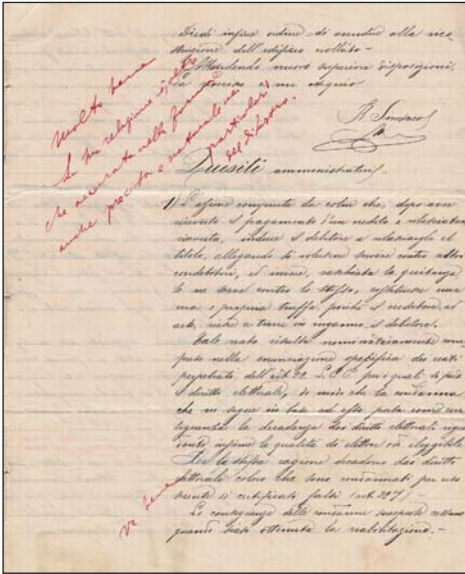 Diedi infine ordine di accudire alla rico
struzione dell'edifizio crollato -
Attendendo nuove superiori disposizioni,
La con ossequio
Il Sindaco
Molto bene
La sua relazione è, oltre
che accurata nella forma,
anche precisa e naturale nei
particolari
del disastro.
Quesiti amministrativi.
1) L'azione compiuta da colui che, dopo aver
ricevuto il pagamento d'un credito e rilasciatane
ricevuta, induce il debitore a rilasciargli il
titolo, allegando di volersene servire contro altri
condebitori, ed invece, raschiata la quietanza
se ne serve contro lo stesso, costituisce una
vera e propria truffa, poiché il creditore, ad
arte, riesce a trarre in inganno il debitore.
Tale reato risulta nominativamente com
preso nella enunciazione specifica dei reati
perpetrati dell'art. 22 per i quali si perde
il diritto elettorale, in modo che la condanna
che ne segue in base ad esso, porta come con
seguenza la decadenza dei diritti elettorali
la qualità di elettore ed eleggibile
Per la stessa ragione decadono dai diritti
elettorali coloro che sono condannati per uso
di certificato falso (art.
Le conseguenze delle condanne suesposte cessano
quando siasi ottenuta la riabilitazione. -
va bene